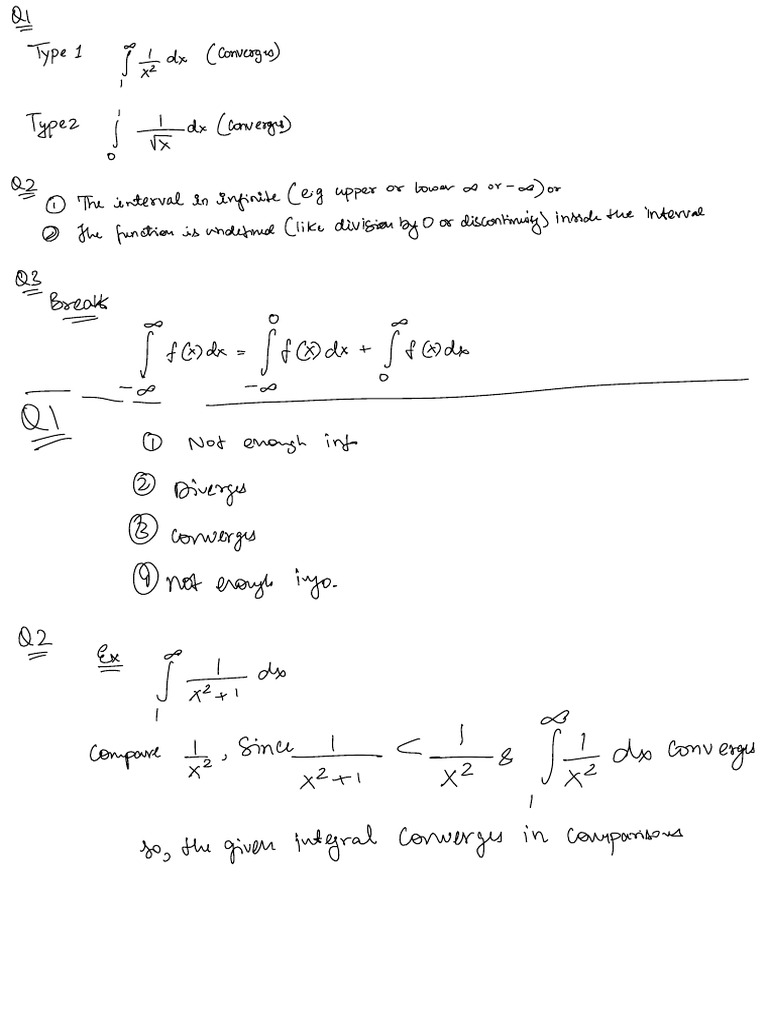 Q1
Type 1 ∫₁^∞ 1/x² dx (Converges)
Type 2 ∫₀¹ 1/√x dx (Converges)
Q2
① The interval is infinite (e.g upper or lower ∞ or -∞) or
② The function is undefined (like division by 0 or discontinuity) inside the interval
Q3
Break
∫₋∞^∞ f(x) dx = ∫₋∞^0 f(x) dx + ∫₀^∞ f(x) dx
Q1
① Not enough inf
② Diverges
③ Converges
④ Not enough info.
Q2
Ex ∫₁^∞ 1/(x²+1) dx
Compare 1/x², Since 1/(x²+1) < 1/x² & ∫₁^∞ 1/x² dx Converges
so, the given integral Converges in comparisons